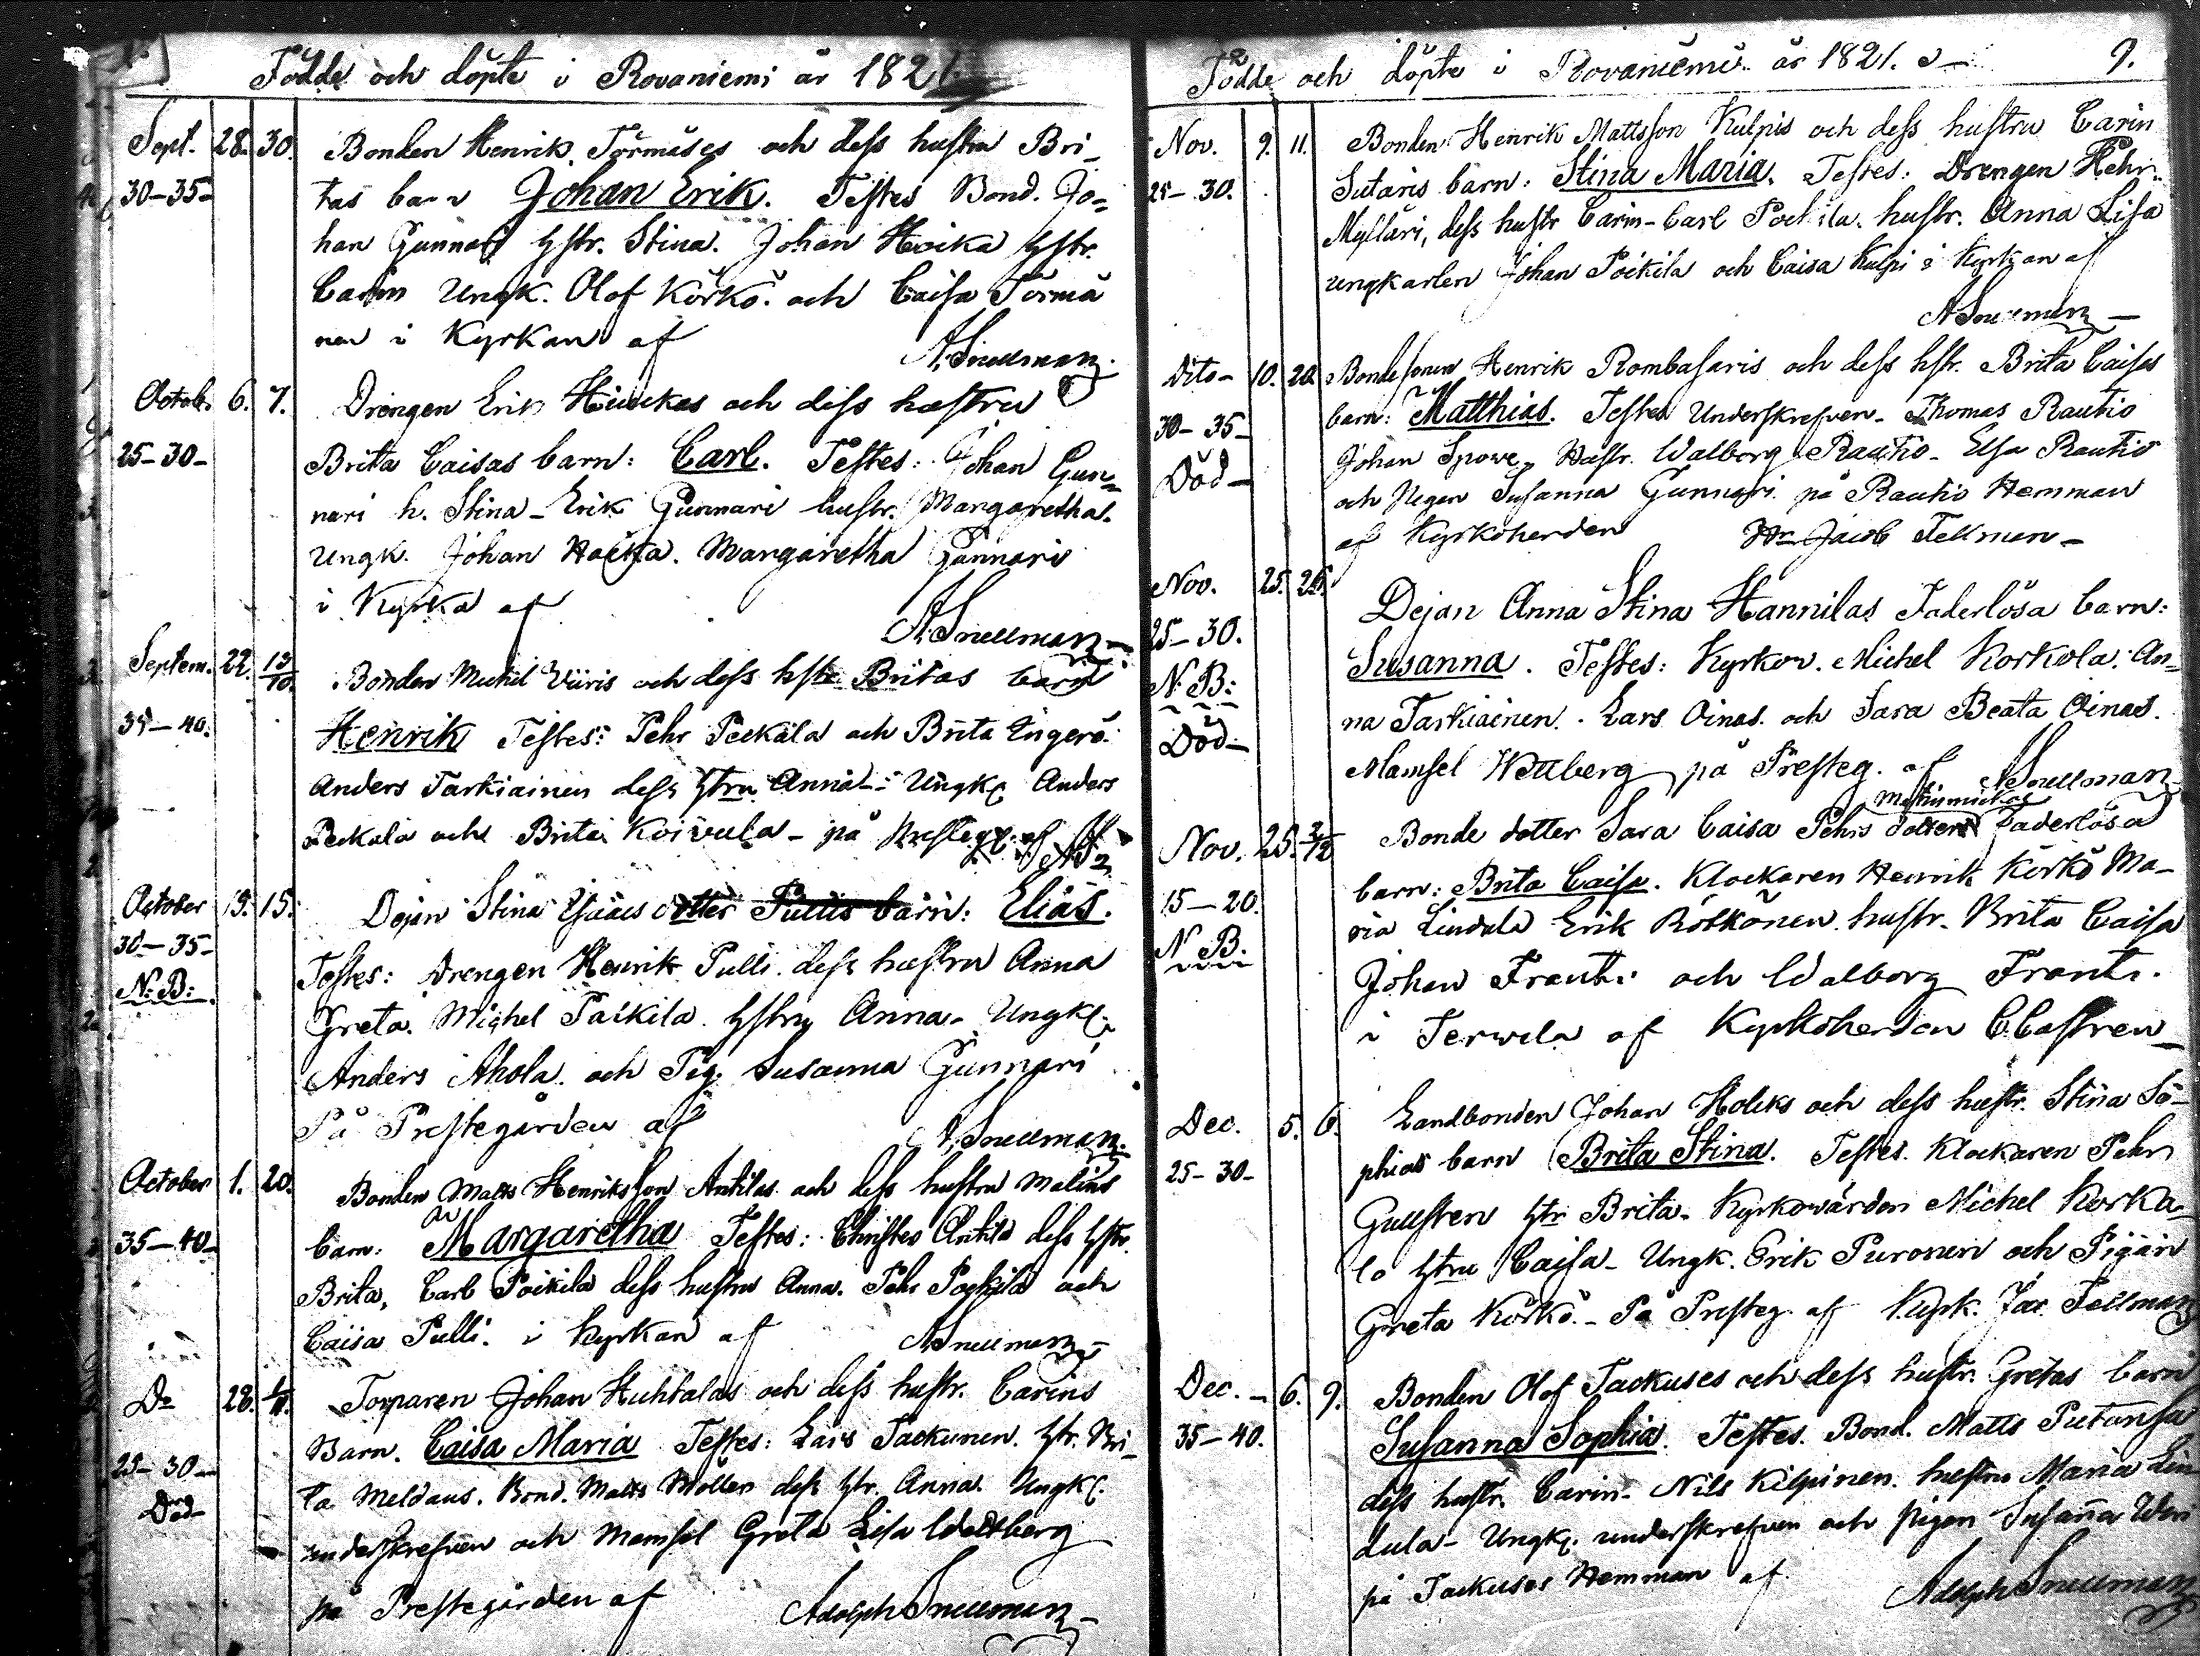 Födde och döpte i Rovaniemi år 1821.
Sept. 28. 30. Bonden Henrik Törmäses och dess hustru Bri-
30-35- tas barn Johan Erik. Testes Bond. Jo=
han Gunnari hstr. Stina. Johan Hoika hstr.
Carin Ungk. Olof Körkö. och Caisa Törmä
nen i Kyrkan af
A. Snellman.
Octob. 6. 7. Drengen Erik och dess hustru
25-30- Brita Caisas barn: Carl. Testes: Johan Gun=
nari h. Stina - Erik Gunnari hustr. Margaretha.
Ungk. Johan Margaretha Gunnari
i Kyrka af
A Snellman
Septem. 22. 13/10. Bonden Michel Viiris och dess hstr Britas barn
35-40. Henrik Testes: Pehr Peckala och Brita Ingerö.
Anders Tarkiainen dess hstru Anna - Ungk. Anders
Peckala och Brita Koivula - på Presteg. af
October 13. 15. Dejan Stina Isaacs dotter Pullis barn: Elias.
30-35- Testes: Drengen Henrik Pulli. dess hustru Anna
N:B: Greta. Michel Paikila. hstru Anna - Ungk.
Anders Ahola. och Pig. Susanna Gunnari
På Prestegården af
A. Snellman.
October 1. 20. Bonden Matts Henriksson Antilas och dess hustru Malins
35-40- barn: Margaretha Testes: Christer Antila dess hstr.
Brita, Carl Poikila dess hustru Anna. Pehr Poikila och
Caisa Pulli. i Kyrkan af A Snellman
Do 28. Torparen Johan Huhtalas och dess hustr. Carins
25-30- Barn. Caisa Maria Testes: Lars Tackunen. hstr. Bri-
Död- ta Meldaus. Bond. Matts Möller dess hstr. Anna. Ungk.
underskrefven och Mamsel Greta Lisa Wettberg
på Prestegården af Adolph Snellman
Födde och döpte i Rovaniemi år 1821. 9.
Nov. 9. 11. Bonden Henrik Mattsson Kulpis och dess hustru Carin
25-30. Sutaris barn: Stina Maria. Testes: Drengen Hehr.
Mylläri, dess hustr Carin - Carl Poikila. hustr. Anna Lisa
ungkarlen Johan Poikila och Caisa Kulpi i Kyrkan af
A Snellman
Dito- 10. 20. Bondesonen Henrik Rombasaris och dess hstr. Brita Caisas
30-35- barn: Matthias. Testes Underskrefven - Thomas Rautio
Död- Johan Spowe - Hustr. Walborg Rautio - Elsa Rautio
och Pigan Susanna Gunnari på Rautio Hemman
af Kyrkoherden Hr Jacob Fellman
Nov. 25. 26. Dejan Anna Stina Hannilas Faderlösa barn:
25-30. Susanna. Testes: Kyrkov. Michel Korkola. An=
N:B: na Tarkiainen. Lars Oinas. och Sara Beata Oinas.
Död- Mamsel Wettberg på Presteg. af A Snellman
Nov. 25. 2/12 Bonde dotter Sara Caisa Pehrs dotter faderlösa
15-20. barn: Brita Caisa. Klockaren Henrik Körkö Ma-
N B: ria Lindula Erik Rötkönen hustr. Brita Caisa
Johan Franti och Walborg Franti.
i Terwola af Kyrkoherden C Castren
Dec. 5. 6. Landbonden Johan Holcks och dess hustr. Stina So-
25-30- phias barn Brita Stina. Testes. Klockaren Pehr
Gullsten hstr Brita - Kyrkowärden Michel Korka-
lo hstru Caisa - Ungk. Erik Puronen och Pigan
Greta Körkö. - På Presteg. af Kyrk. Jac Fellman
Dec. - 6. 9. Bonden Olof Tackuses och dess hustr. Gretas barn
35-40. Susanna Sophia. Testes. Bond. Matts Putansu
dess hustr. Carin - Nils Kilpinen. hustru Maria Lin
dula - Ungk. underskrefven och pigan Susanna
på Tackuses Hemman af Adolph Snellman